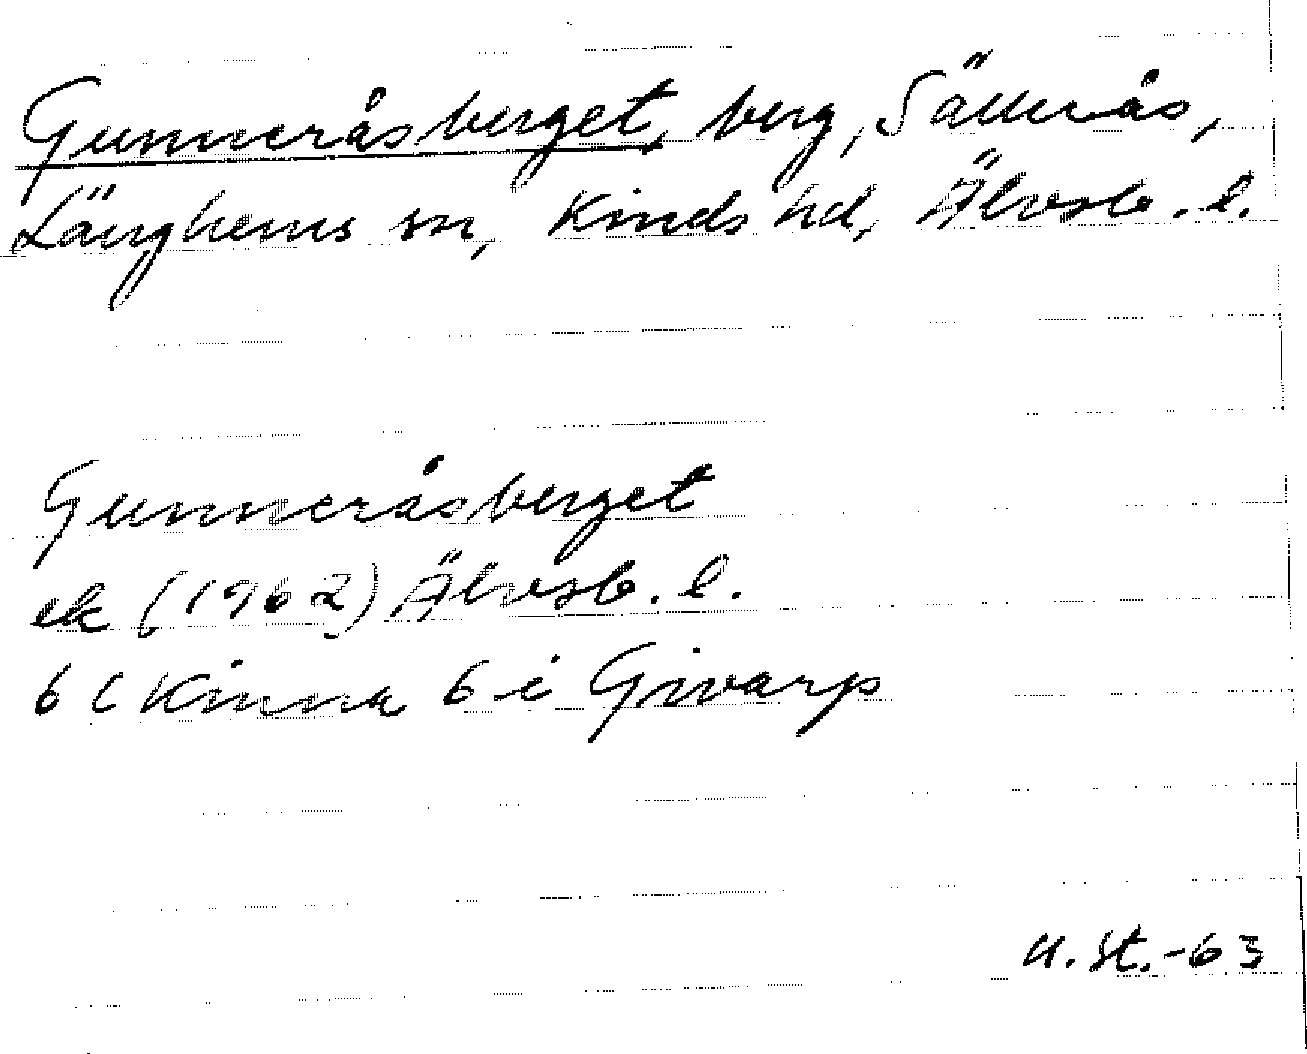 Gunneråsberget, berg, Sällerås,
Länghems sn, Kinds hd, Älvsb. l.
Gunneråsberget
ek (1962) Älvsb. l.
6 C Kinna 6 i Givarp
U. St. -63